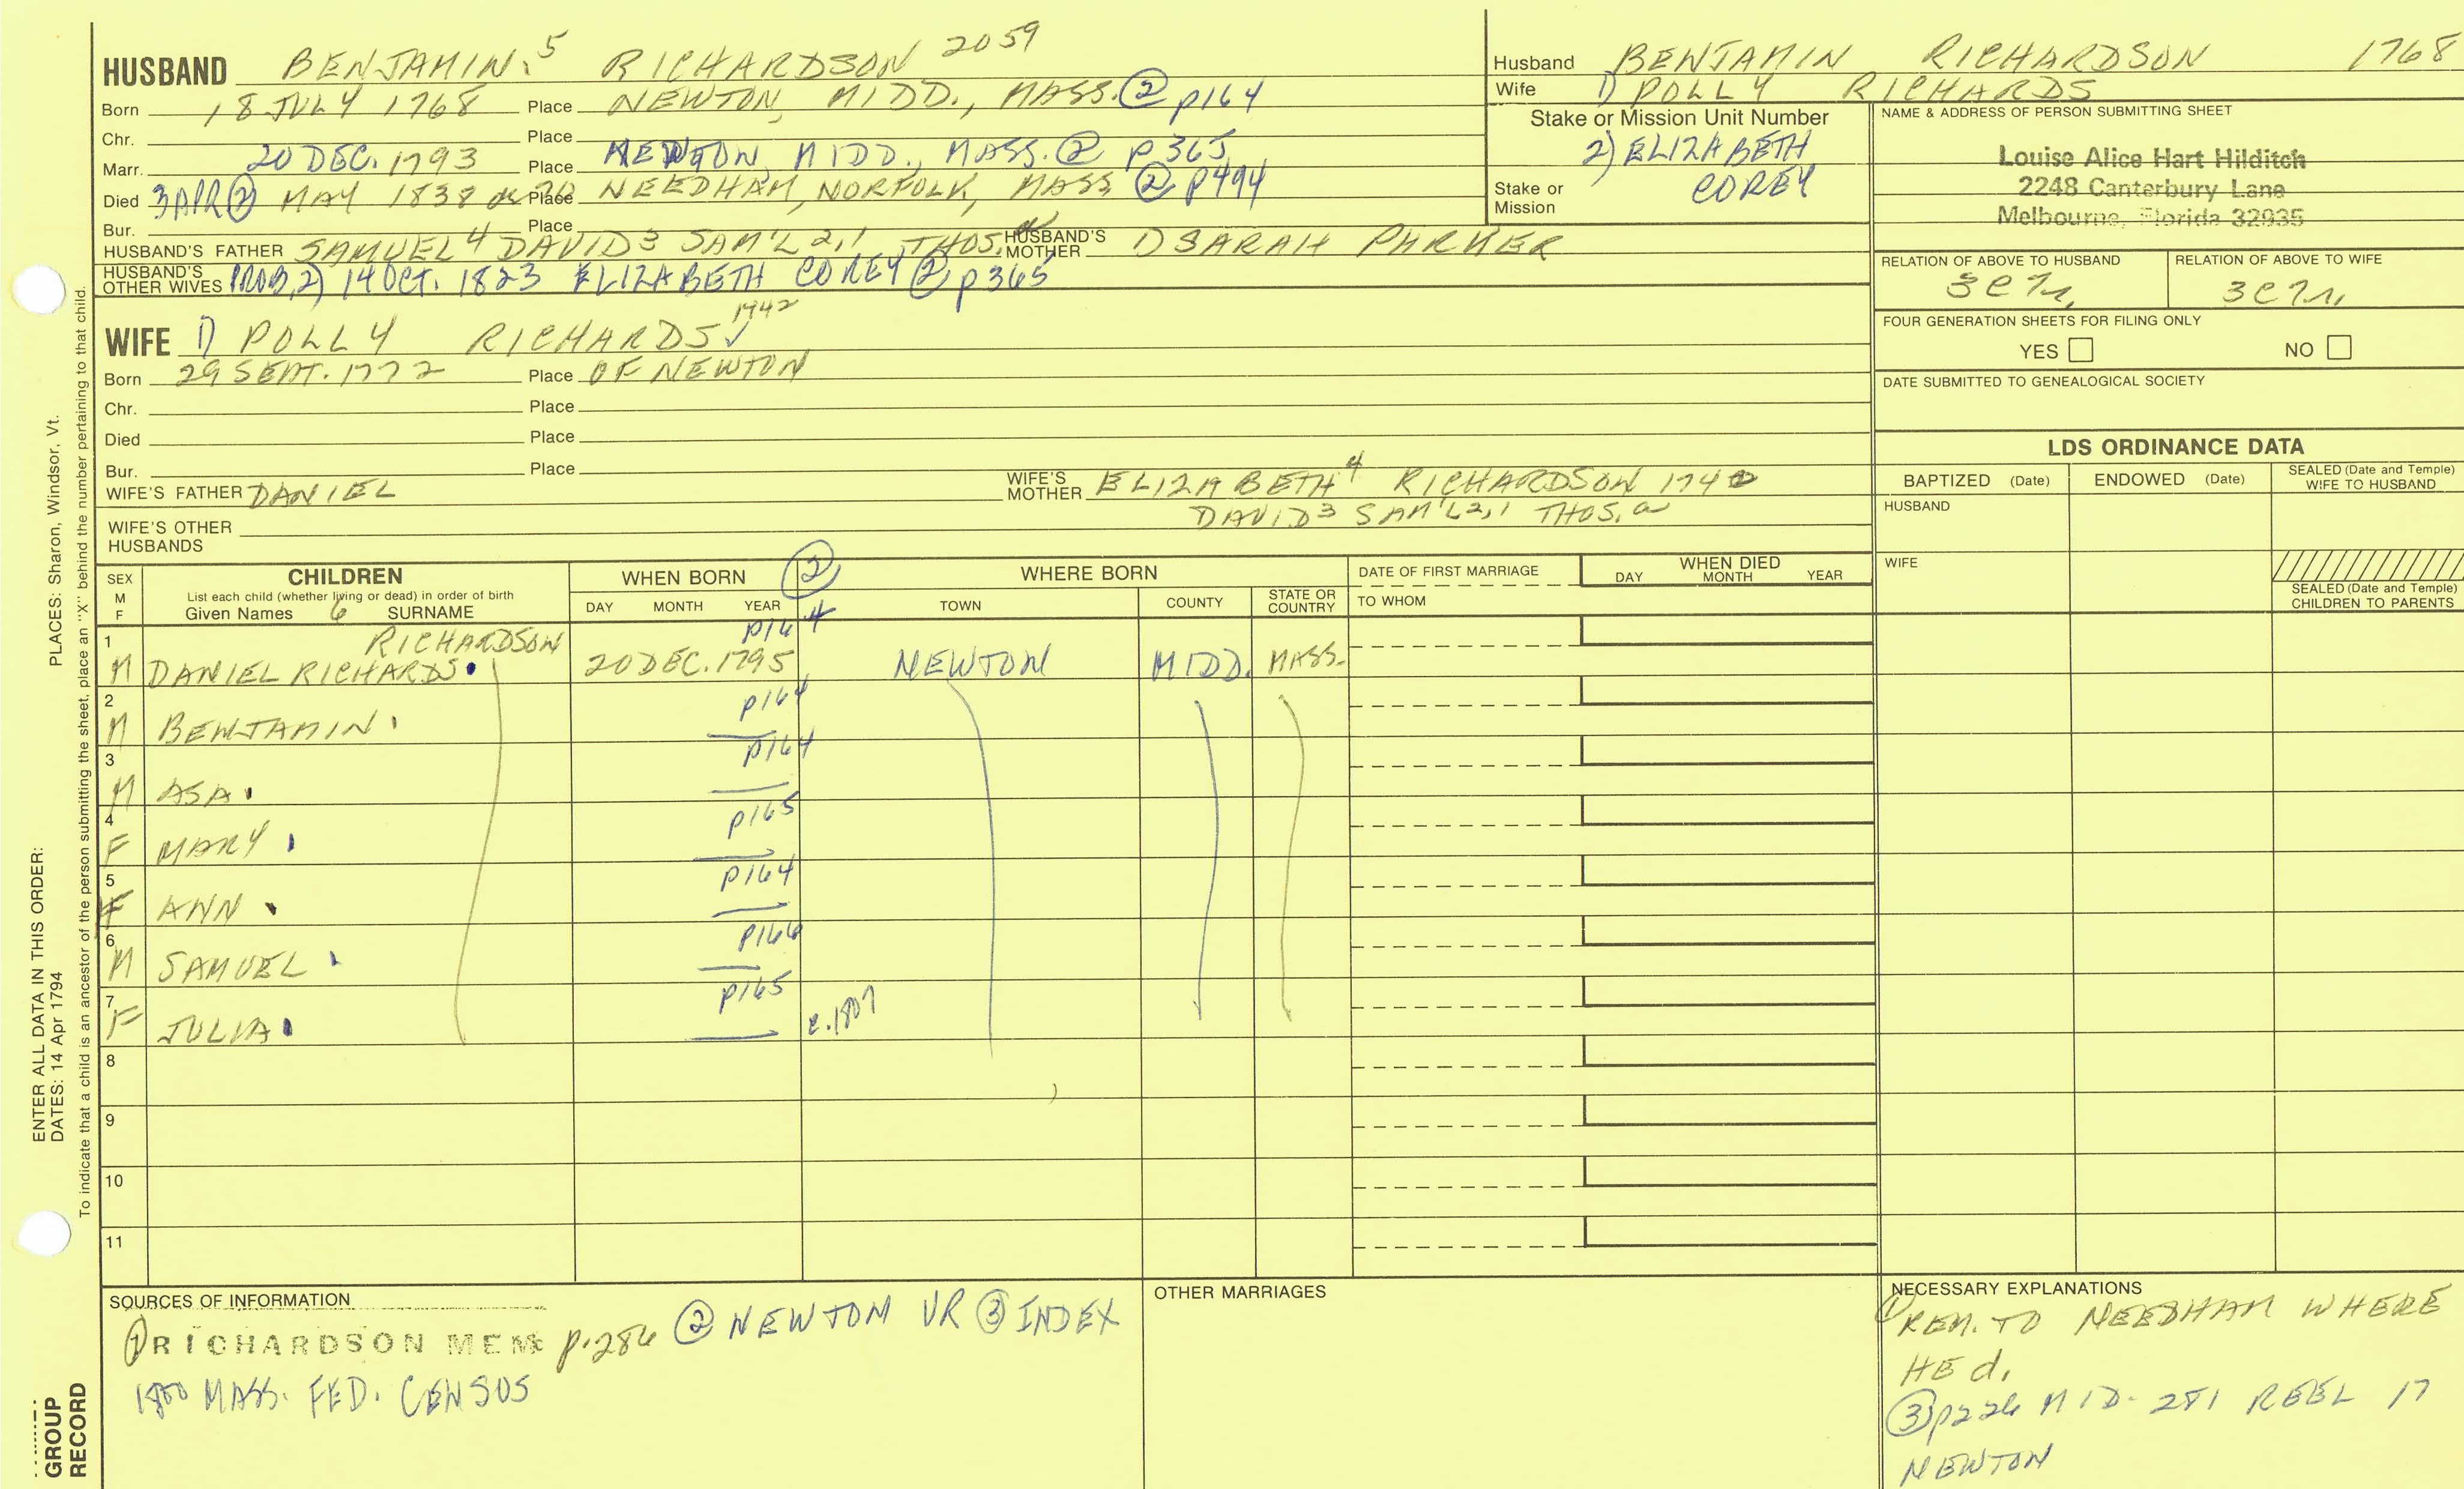 HUSBAND BENJAMIN. 5 RICHARDSON 2059
Born 18 JULY 1768 Place NEWTON, MIDD., MASS. ② p164
Chr. Place
Marr. 20 DEC. 1793 Place NEWTON MIDD., MASS. ② p365
Died 3 APR ② MAY 1838 Place NEEDHAM, NORFOLK, MASS ② p494
Bur. Place
HUSBAND'S FATHER SAMUEL 4 DAVID 3 SAM'L 2,1 THOS. a HUSBAND'S MOTHER SARAH PARKER
HUSBAND'S OTHER WIVES PROB. 2) 14 OCT. 1823 ELIZABETH COREY ② p365
Husband BENJAMIN RICHARDSON 1768
Wife 1) POLLY RICHARDS
Stake or Mission Unit Number
2) ELIZABETH
COREY
Stake or Mission
NAME & ADDRESS OF PERSON SUBMITTING SHEET
Louise Alice Hart Hilditch
2248 Canterbury Lane
Melbourne, Florida 32935
RELATION OF ABOVE TO HUSBAND RELATION OF ABOVE TO WIFE
FOUR GENERATION SHEETS FOR FILING ONLY
YES NO
DATE SUBMITTED TO GENEALOGICAL SOCIETY
1742
WIFE 1) POLLY RICHARDS
Born 29 SEPT. 1772 Place OF NEWTON
Chr. Place
Died Place
Bur. Place
WIFE'S FATHER DANIEL WIFE'S MOTHER ELIZABETH 4 RICHARDSON
DAVID 3 SAM'L 2,1 THOS. a
WIFE'S OTHER HUSBANDS
LDS ORDINANCE DATA
BAPTIZED (Date) ENDOWED (Date) SEALED (Date and Temple) WIFE TO HUSBAND
HUSBAND
WIFE
SEALED (Date and Temple) CHILDREN TO PARENTS
SEX M F
CHILDREN
List each child (whether living or dead) in order of birth
Given Names 6 SURNAME
WHEN BORN ②
DAY MONTH YEAR
WHERE BORN
TOWN COUNTY STATE OR COUNTRY
DATE OF FIRST MARRIAGE
TO WHOM
WHEN DIED
DAY MONTH YEAR
1 RICHARDSON p164
M DANIEL RICHARDS. 20 DEC. 1795 NEWTON MIDD. MASS.
2 p164
M BENJAMIN
3 p164
M ASA
4 p165
F MARY
5 p164
F ANN
6 p166
M SAMUEL
7 p165
F JULIA c. 1807
8
9
10
11
SOURCES OF INFORMATION
① RICHARDSON MEM p.286 ② NEWTON VR ③ INDEX
1800 MASS. FED. CENSUS
OTHER MARRIAGES
NECESSARY EXPLANATIONS
① REM. TO NEEDHAM WHERE
HE d.
③ p226 MID- 281 REEL 17
NEWTON
ENTER ALL DATA IN THIS ORDER:
DATES: 14 Apr 1794 PLACES: Sharon, Windsor, Vt.
To indicate that a child is an ancestor of the person submitting the sheet, place an "X" behind the number pertaining to that child.
GROUP
RECORD